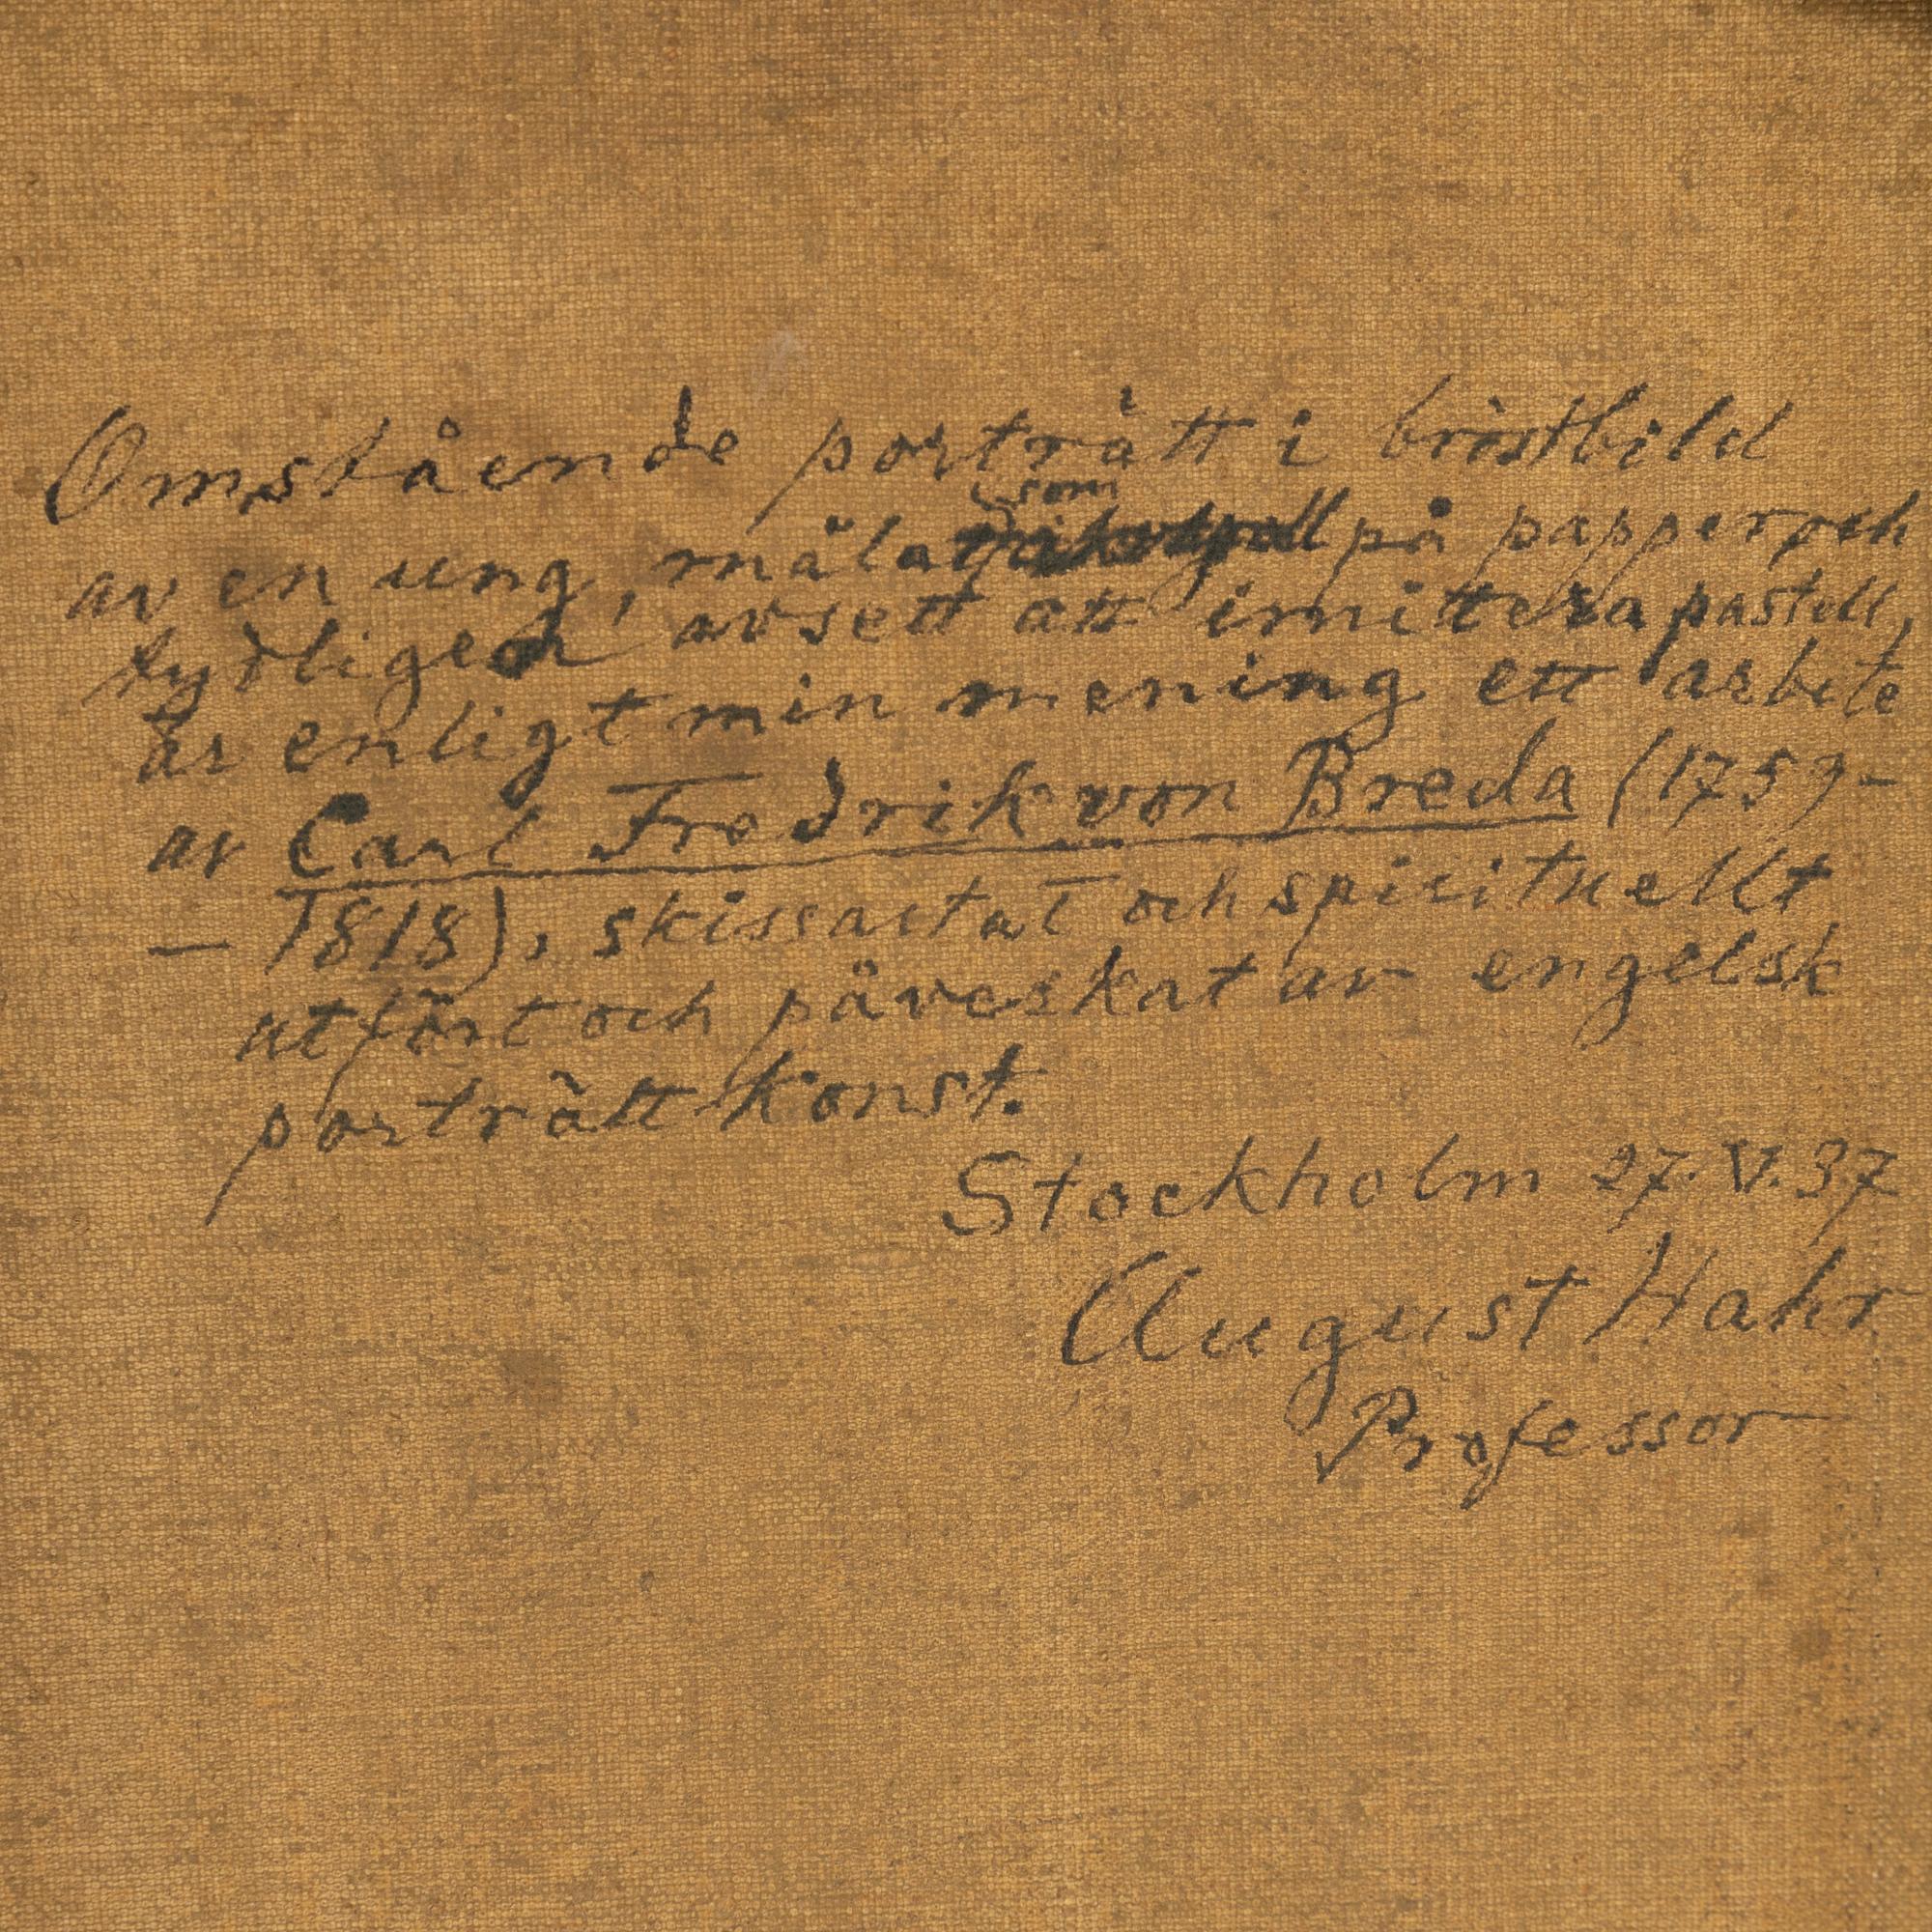 Omstående porträtt i bröstbild
av en ung, målat som på papper och
tydligen avsett att imittera pastell,
är enligt min mening ett arbete
av Carl Fredrik von Breda (1759-
- 1818), skissartat och spirituellt
utfört och påverkat av engelsk
porträttkonst.
Stockholm 27.V.37
August Hahr
Professor